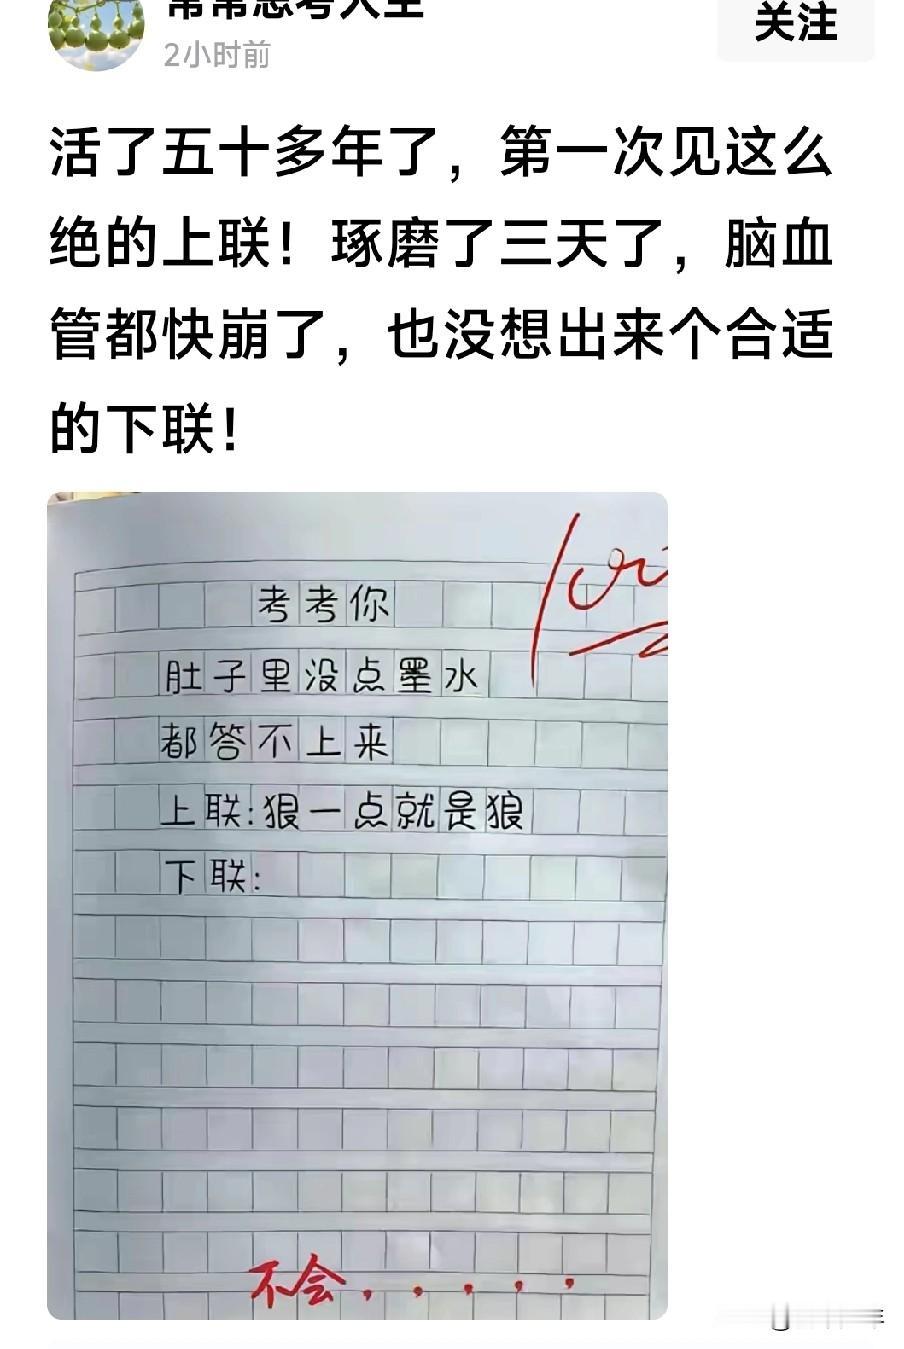 常常思考人生
关注
2小时前
活了五十多年了，第一次见这么
绝的上联！琢磨了三天了，脑血
管都快崩了，也没想出来个合适
的下联！
考考你
肚子里没点墨水
都答不上来
上联:狠一点就是狼
下联:
不会. . . . . .